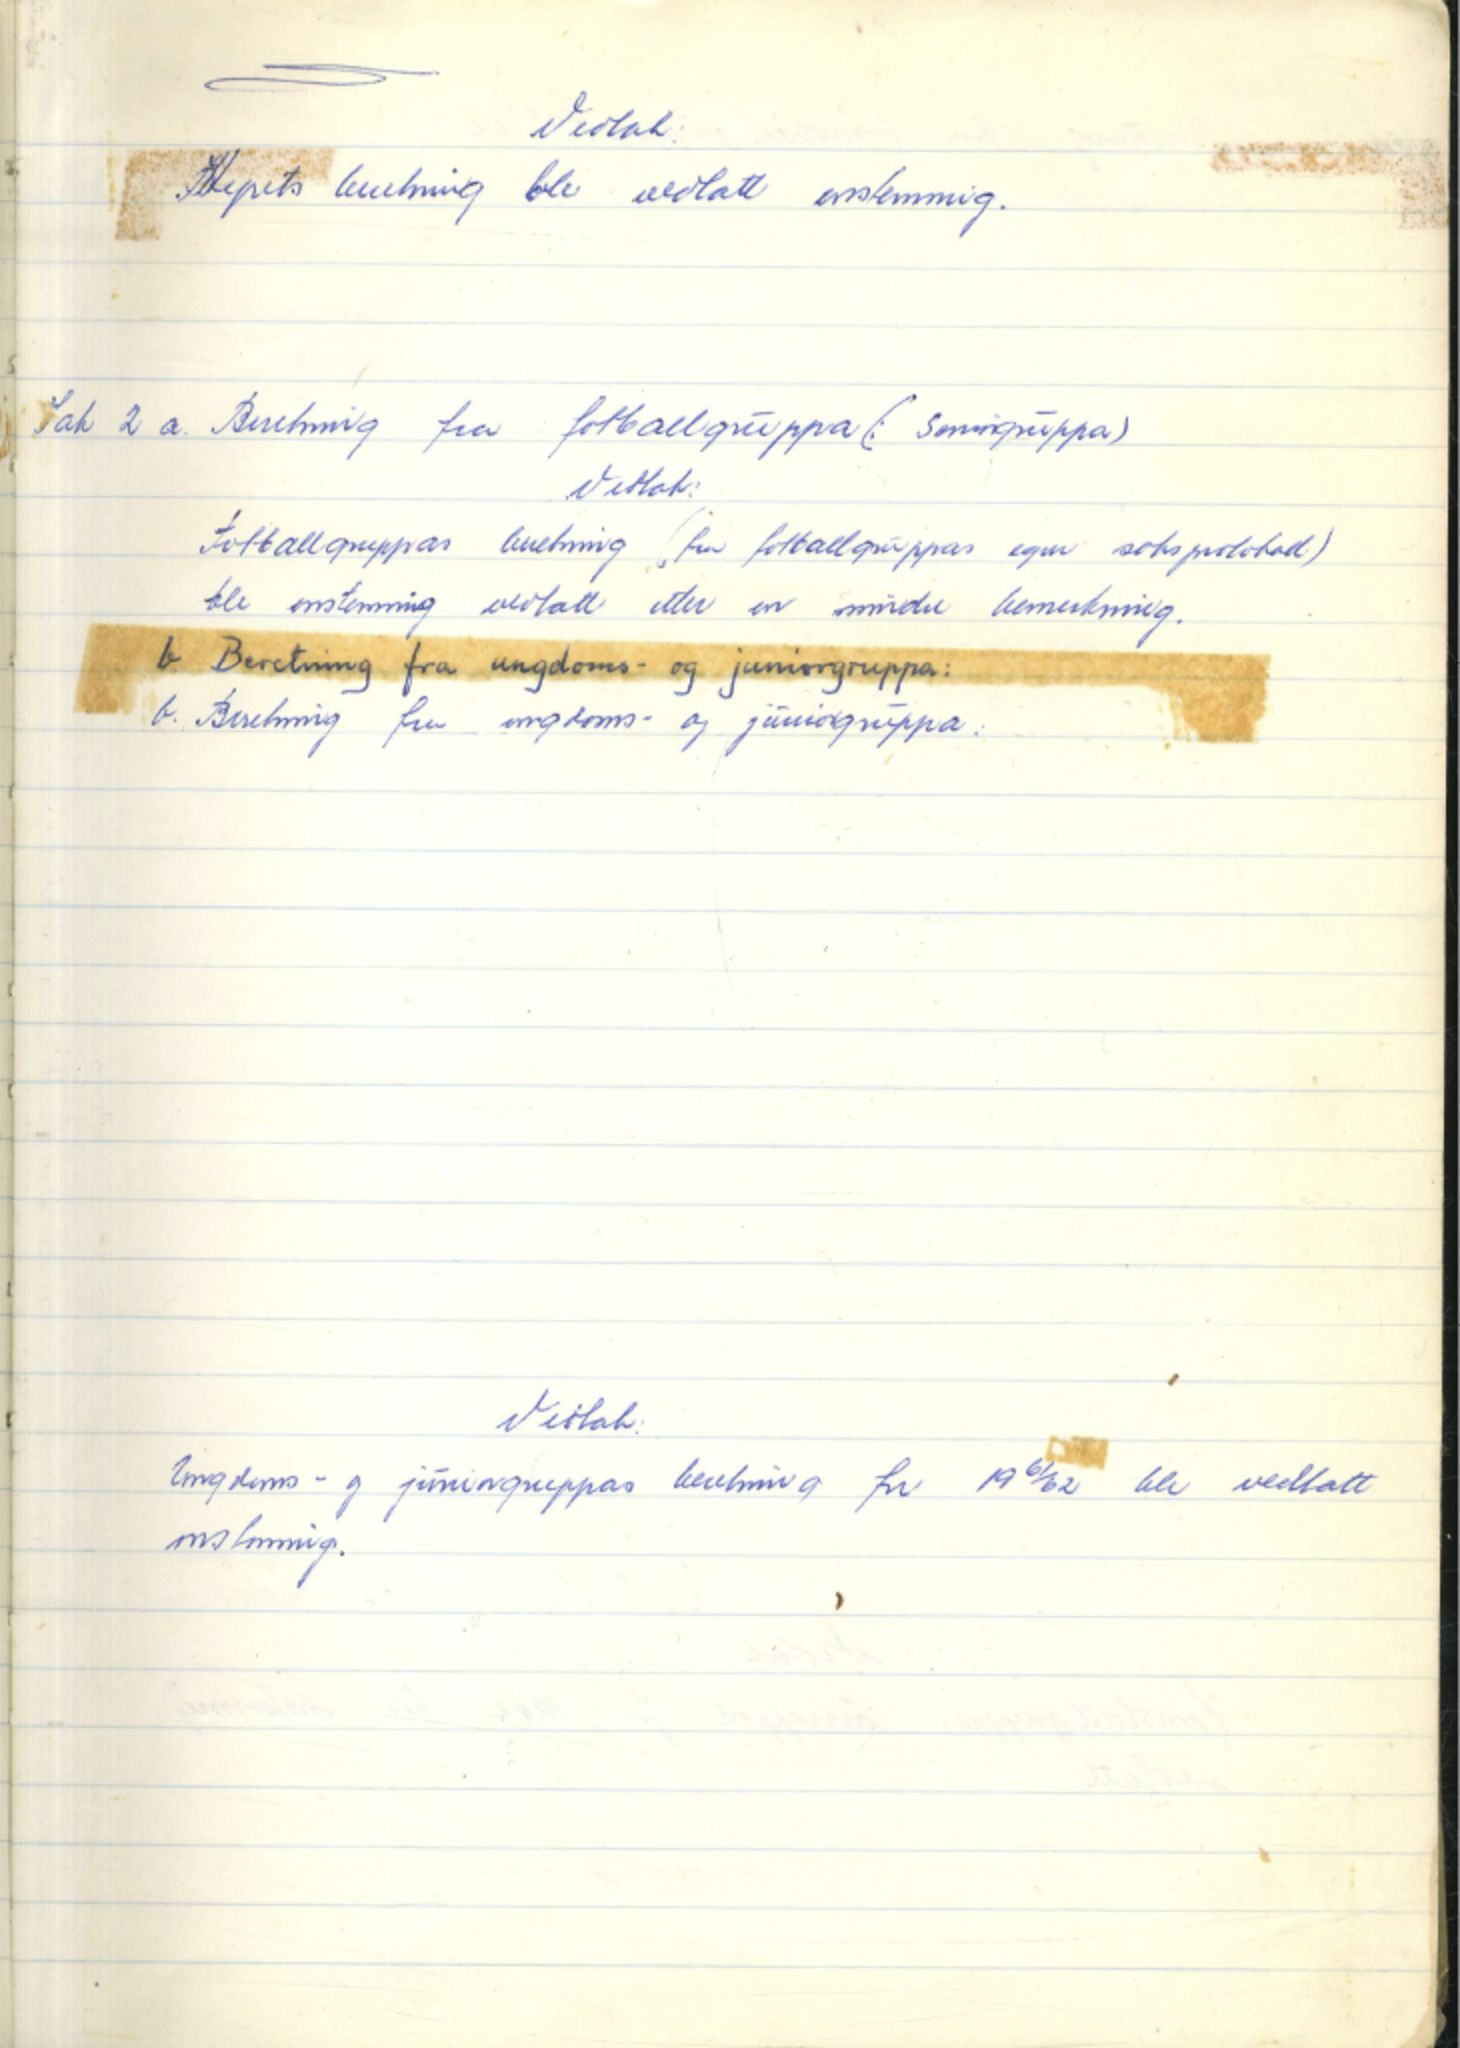 Vedtak:
beretning ble vedtatt enstemmig.
Sak 2 a. Beretning fra fotballgruppa (: Seniorgruppa)
Vedtak:
Fotballgruppas beretning (fra fotballgruppas egen saksprotokoll)
ble enstemmig vedtatt etter en mindre bemerkning.
b Beretning fra ungdoms- og juniorgruppa:
b. Beretning fra ungdoms- og juniorgruppa:
Vedtak:
Ungdoms- og juniorgruppas beretning for 1961/62 ble vedtatt
enstemmig.